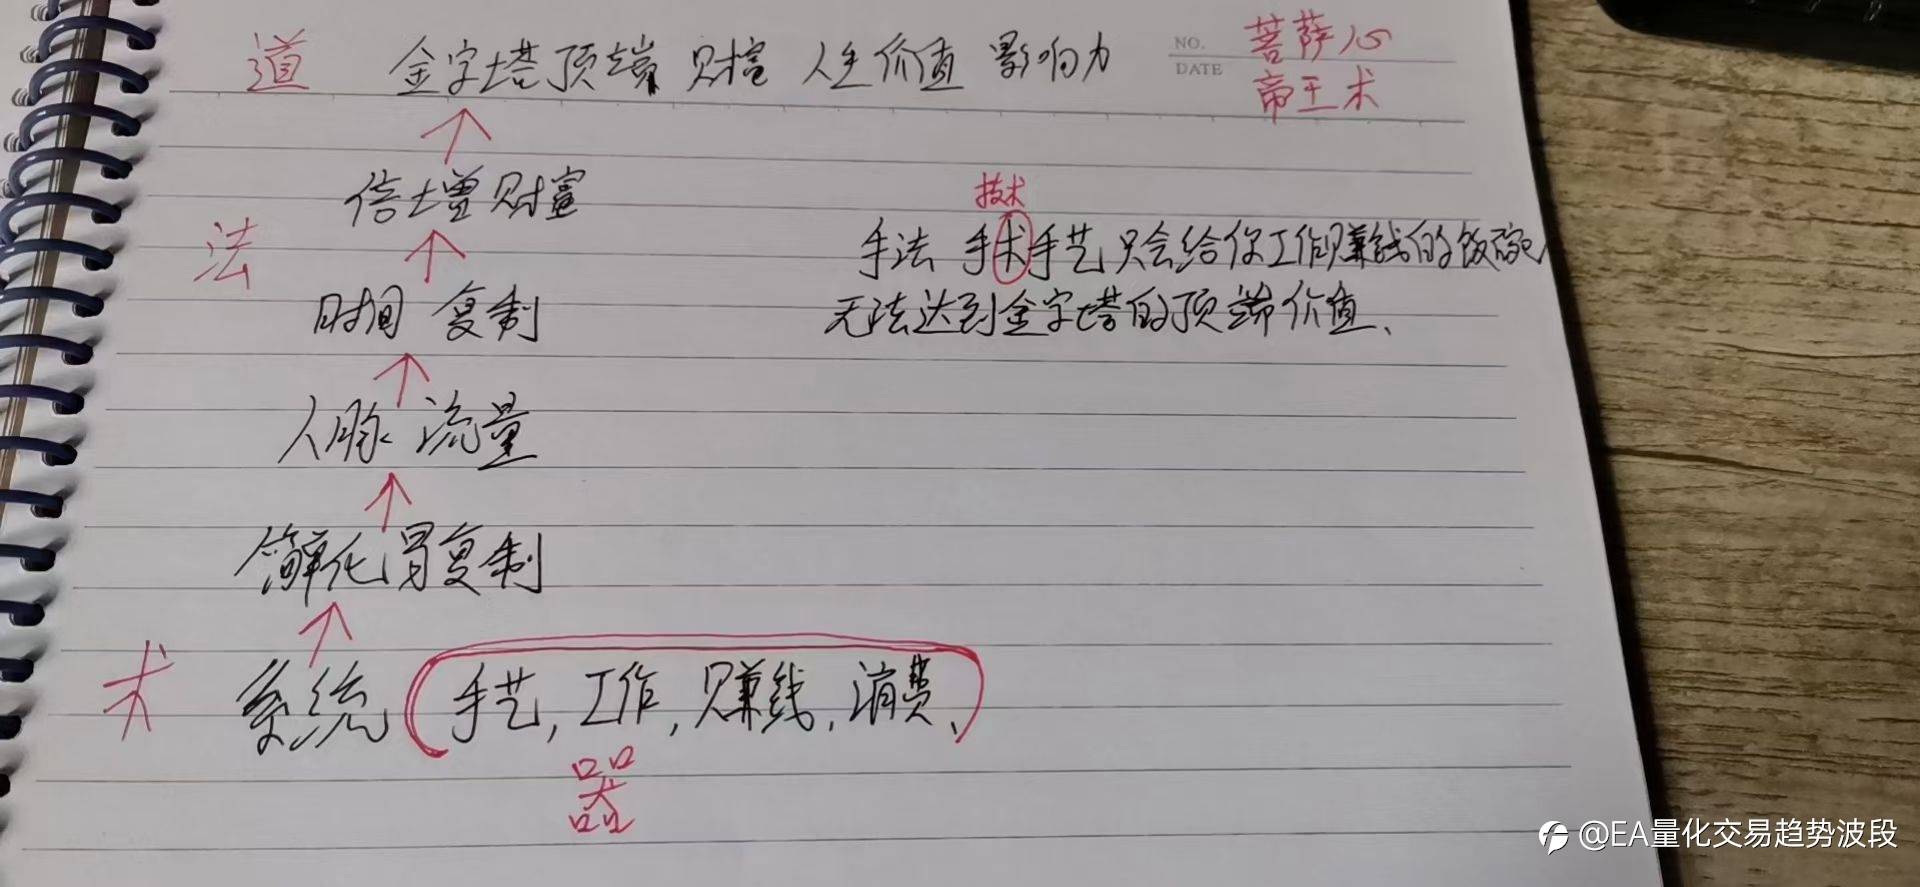 道 金字塔顶端 财富 人生价值 影响力
NO. 菩萨心
DATE 帝王术
倍增财富
技术
法
手法 手术手艺只会给你工作赚钱的饭碗,
时间 复制
无法达到金字塔的顶端价值、
人脉 流量
简单化易复制
术 系统 (手艺, 工作, 赚钱, 消费、)
器
@EA量化交易趋势波段